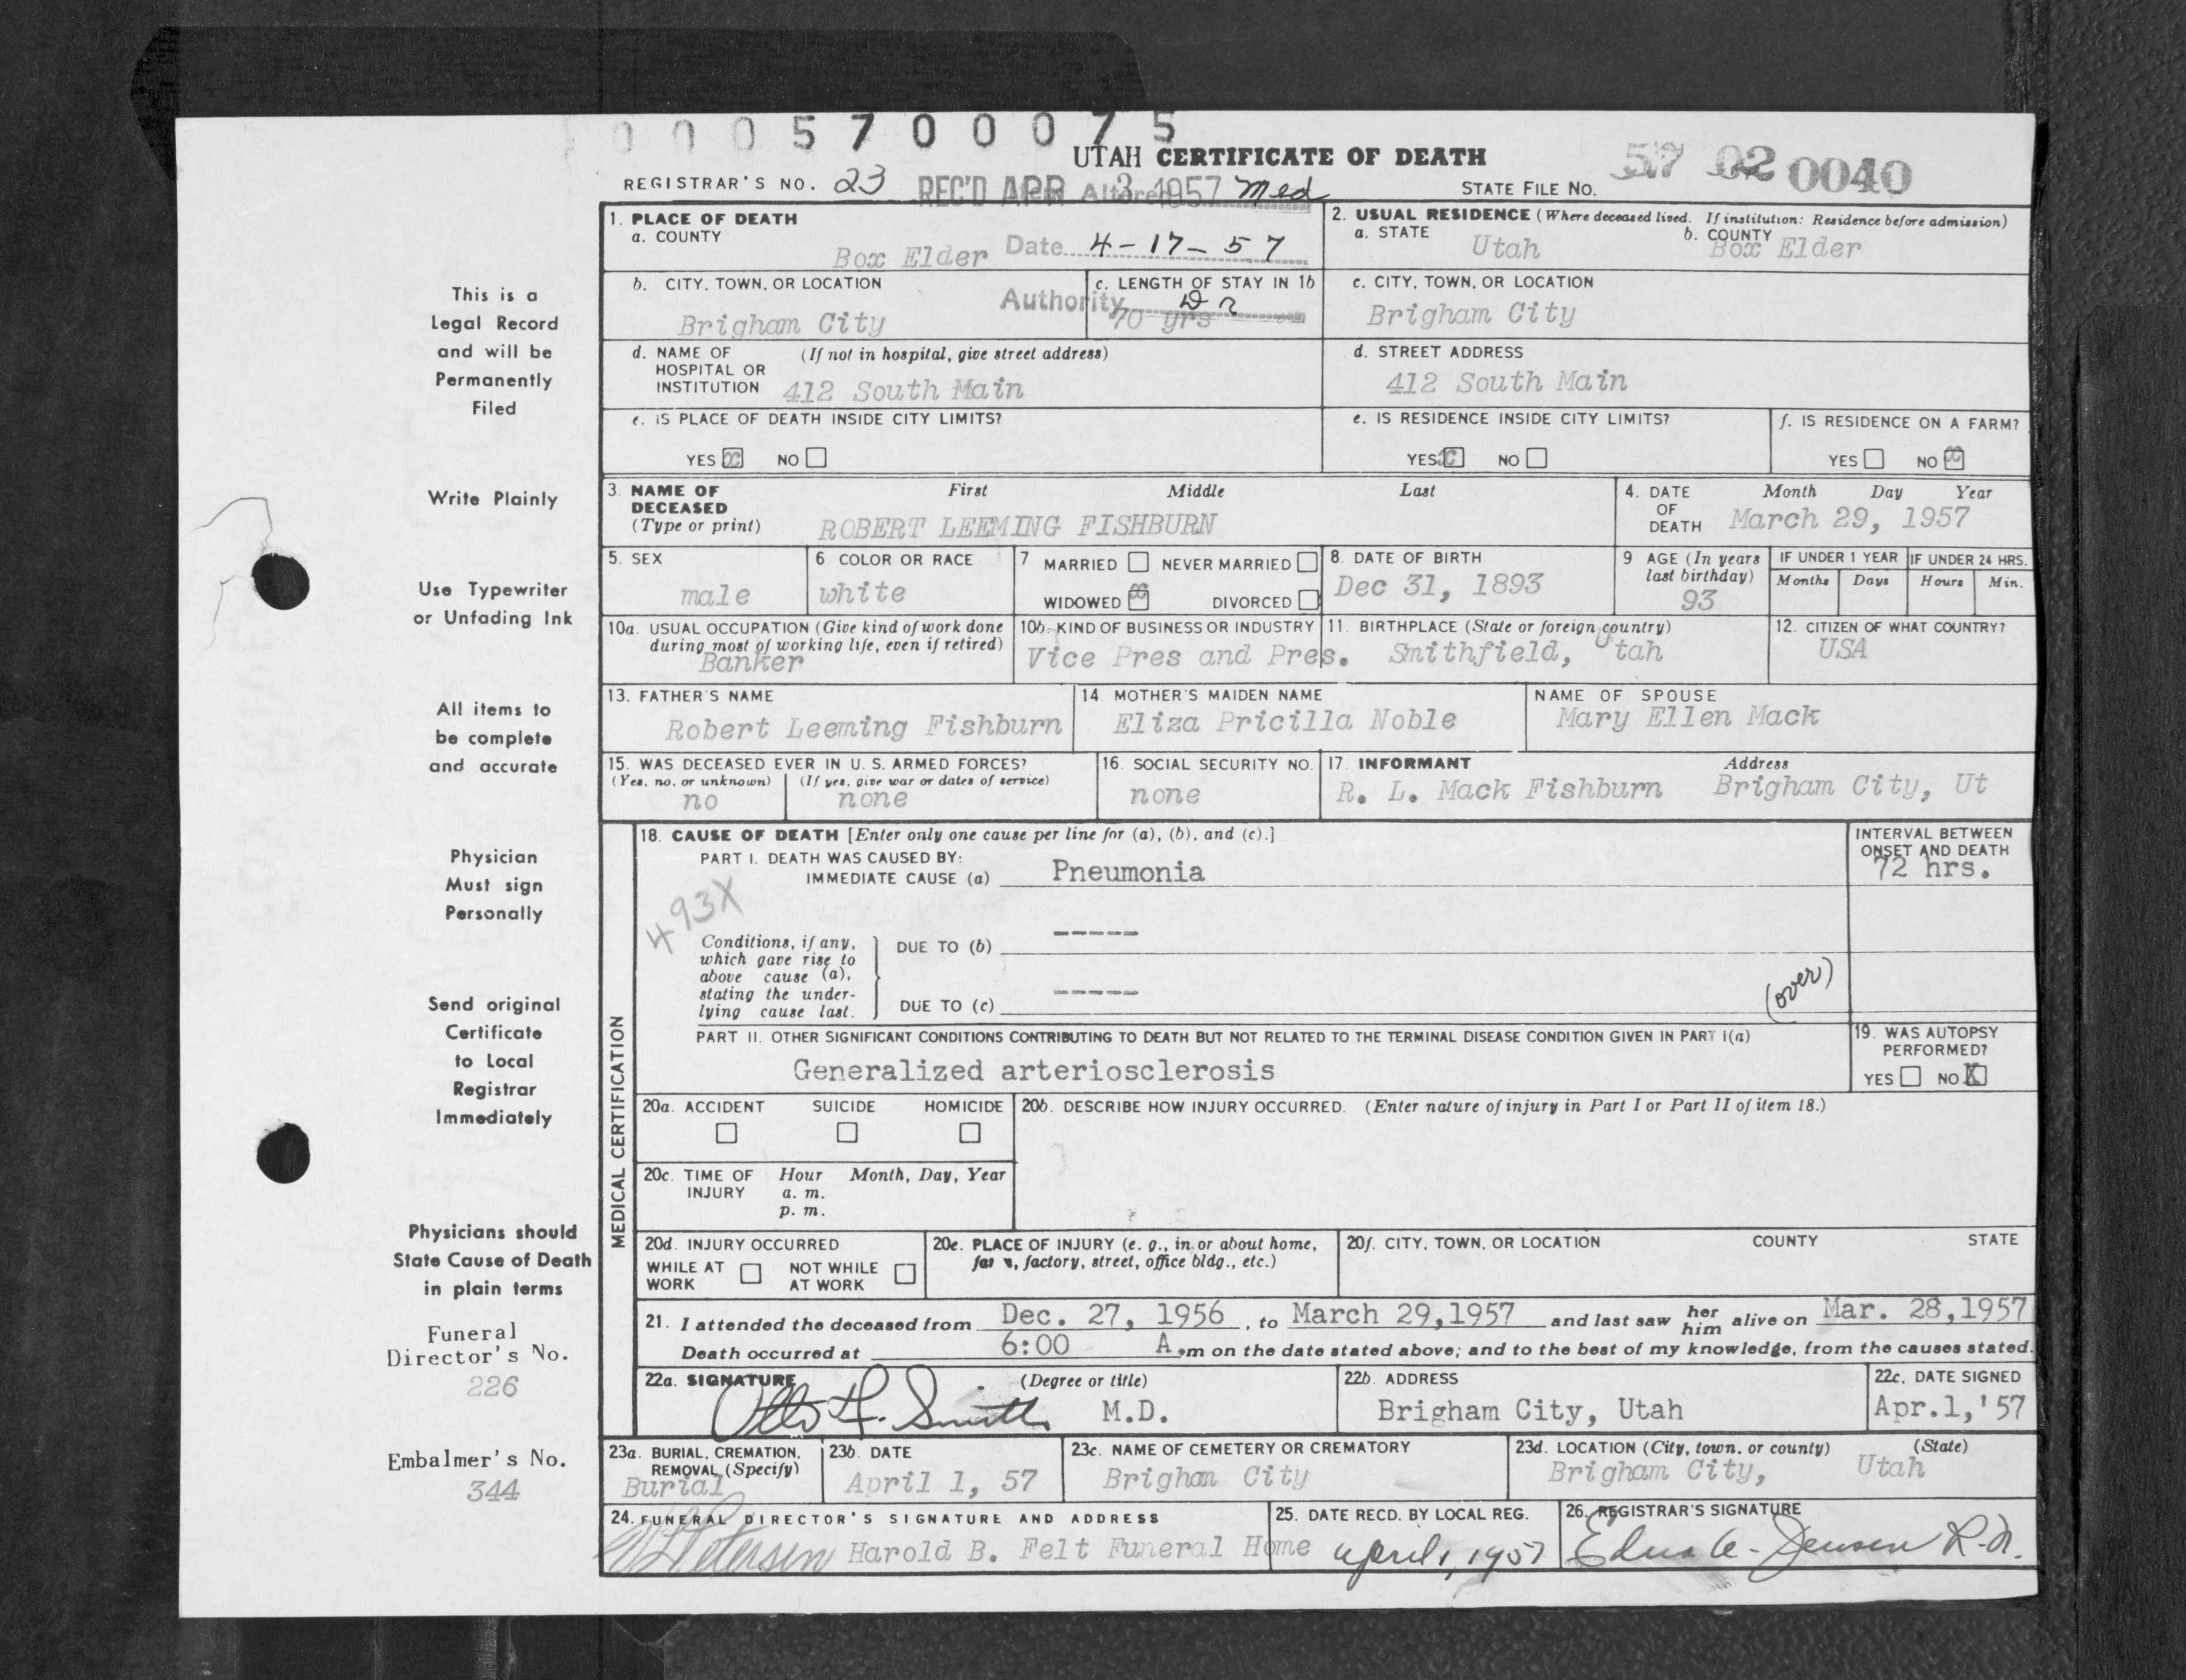 0005700075
UTAH CERTIFICATE OF DEATH
REGISTRAR'S NO. 23 REC'D APR 3 1957 Altered Med STATE FILE NO. 57 02 0040
1. PLACE OF DEATH
a. COUNTY
Box Elder Date 4-17-57
2. USUAL RESIDENCE (Where deceased lived. If institution: Residence before admission)
a. STATE Utah b. COUNTY Box Elder
b. CITY, TOWN, OR LOCATION
Brigham City
Authority Dr
c. LENGTH OF STAY IN 1b
70 yrs
c. CITY, TOWN, OR LOCATION
Brigham City
d. NAME OF HOSPITAL OR INSTITUTION (If not in hospital, give street address)
412 South Main
d. STREET ADDRESS
412 South Main
e. IS PLACE OF DEATH INSIDE CITY LIMITS?
YES X NO
e. IS RESIDENCE INSIDE CITY LIMITS?
YES X NO
f. IS RESIDENCE ON A FARM?
YES NO X
3. NAME OF DECEASED (Type or print) First Middle Last
ROBERT LEEMING FISHBURN
4. DATE OF DEATH Month Day Year
March 29, 1957
5. SEX
male
6 COLOR OR RACE
white
7 MARRIED NEVER MARRIED
WIDOWED X DIVORCED
8. DATE OF BIRTH
Dec 31, 1893
9 AGE (In years last birthday)
93
IF UNDER 1 YEAR
Months Days
IF UNDER 24 HRS.
Hours Min.
10a. USUAL OCCUPATION (Give kind of work done during most of working life, even if retired)
Banker
10b. KIND OF BUSINESS OR INDUSTRY
Vice Pres and Pres.
11. BIRTHPLACE (State or foreign country)
Smithfield, Utah
12. CITIZEN OF WHAT COUNTRY?
USA
13. FATHER'S NAME
Robert Leeming Fishburn
14. MOTHER'S MAIDEN NAME
Eliza Pricilla Noble
NAME OF SPOUSE
Mary Ellen Mack
15. WAS DECEASED EVER IN U. S. ARMED FORCES?
(Yes, no, or unknown) (If yes, give war or dates of service)
no none
16. SOCIAL SECURITY NO.
none
17. INFORMANT Address
R. L. Mack Fishburn Brigham City, Ut
MEDICAL CERTIFICATION
18. CAUSE OF DEATH [Enter only one cause per line for (a), (b), and (c).]
PART I. DEATH WAS CAUSED BY:
IMMEDIATE CAUSE (a) Pneumonia
INTERVAL BETWEEN ONSET AND DEATH
72 hrs.
493X
Conditions, if any, which gave rise to above cause (a), stating the underlying cause last.
DUE TO (b) -----
DUE TO (c) -----
(over)
PART II. OTHER SIGNIFICANT CONDITIONS CONTRIBUTING TO DEATH BUT NOT RELATED TO THE TERMINAL DISEASE CONDITION GIVEN IN PART I(a)
Generalized arteriosclerosis
19. WAS AUTOPSY PERFORMED?
YES NO X
20a. ACCIDENT SUICIDE HOMICIDE
20b. DESCRIBE HOW INJURY OCCURRED. (Enter nature of injury in Part I or Part II of item 18.)
20c. TIME OF INJURY Hour Month, Day, Year
a. m.
p. m.
20d. INJURY OCCURRED
WHILE AT WORK NOT WHILE AT WORK
20e. PLACE OF INJURY (e. g., in or about home, farm, factory, street, office bldg., etc.)
20f. CITY, TOWN, OR LOCATION COUNTY STATE
21. I attended the deceased from Dec. 27, 1956, to March 29,1957 and last saw her him alive on Mar. 28,1957
Death occurred at 6:00 A.m on the date stated above; and to the best of my knowledge, from the causes stated.
22a. SIGNATURE (Degree or title)
Otto F. Smith M.D.
22b. ADDRESS
Brigham City, Utah
22c. DATE SIGNED
Apr.1,'57
23a. BURIAL, CREMATION, REMOVAL (Specify)
Burial
23b. DATE
April 1, 57
23c. NAME OF CEMETERY OR CREMATORY
Brigham City
23d. LOCATION (City, town, or county) (State)
Brigham City, Utah
24. FUNERAL DIRECTOR'S SIGNATURE AND ADDRESS
Petersen Harold B. Felt Funeral Home
25. DATE RECD. BY LOCAL REG.
April 1, 1957
26. REGISTRAR'S SIGNATURE
Edna A. Jensen R.N.
This is a
Legal Record
and will be
Permanently
Filed
Write Plainly
Use Typewriter
or Unfading Ink
All items to
be complete
and accurate
Physician
Must sign
Personally
Send original
Certificate
to Local
Registrar
Immediately
Physicians should
State Cause of Death
in plain terms
Funeral
Director's No.
226
Embalmer's No.
344